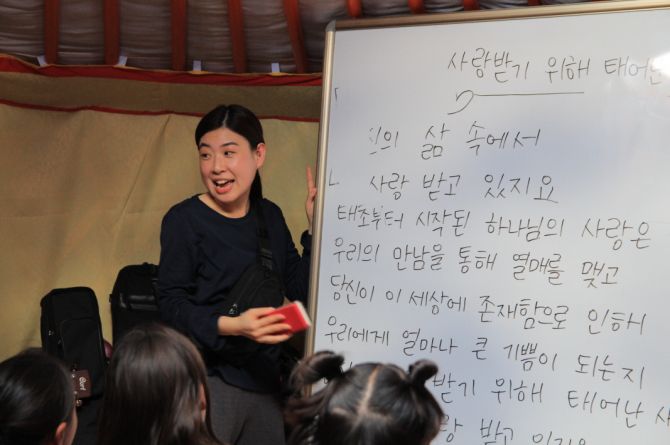 사랑받기 위해 태어난
의 삶 속에서
사랑 받고 있지요
태초부터 시작된 하나님의 사랑은
우리의 만남을 통해 열매를 맺고
당신이 이 세상에 존재함으로 인해
우리에게 얼마나 큰 기쁨이 되는지
받기 위해 태어난 사
받고